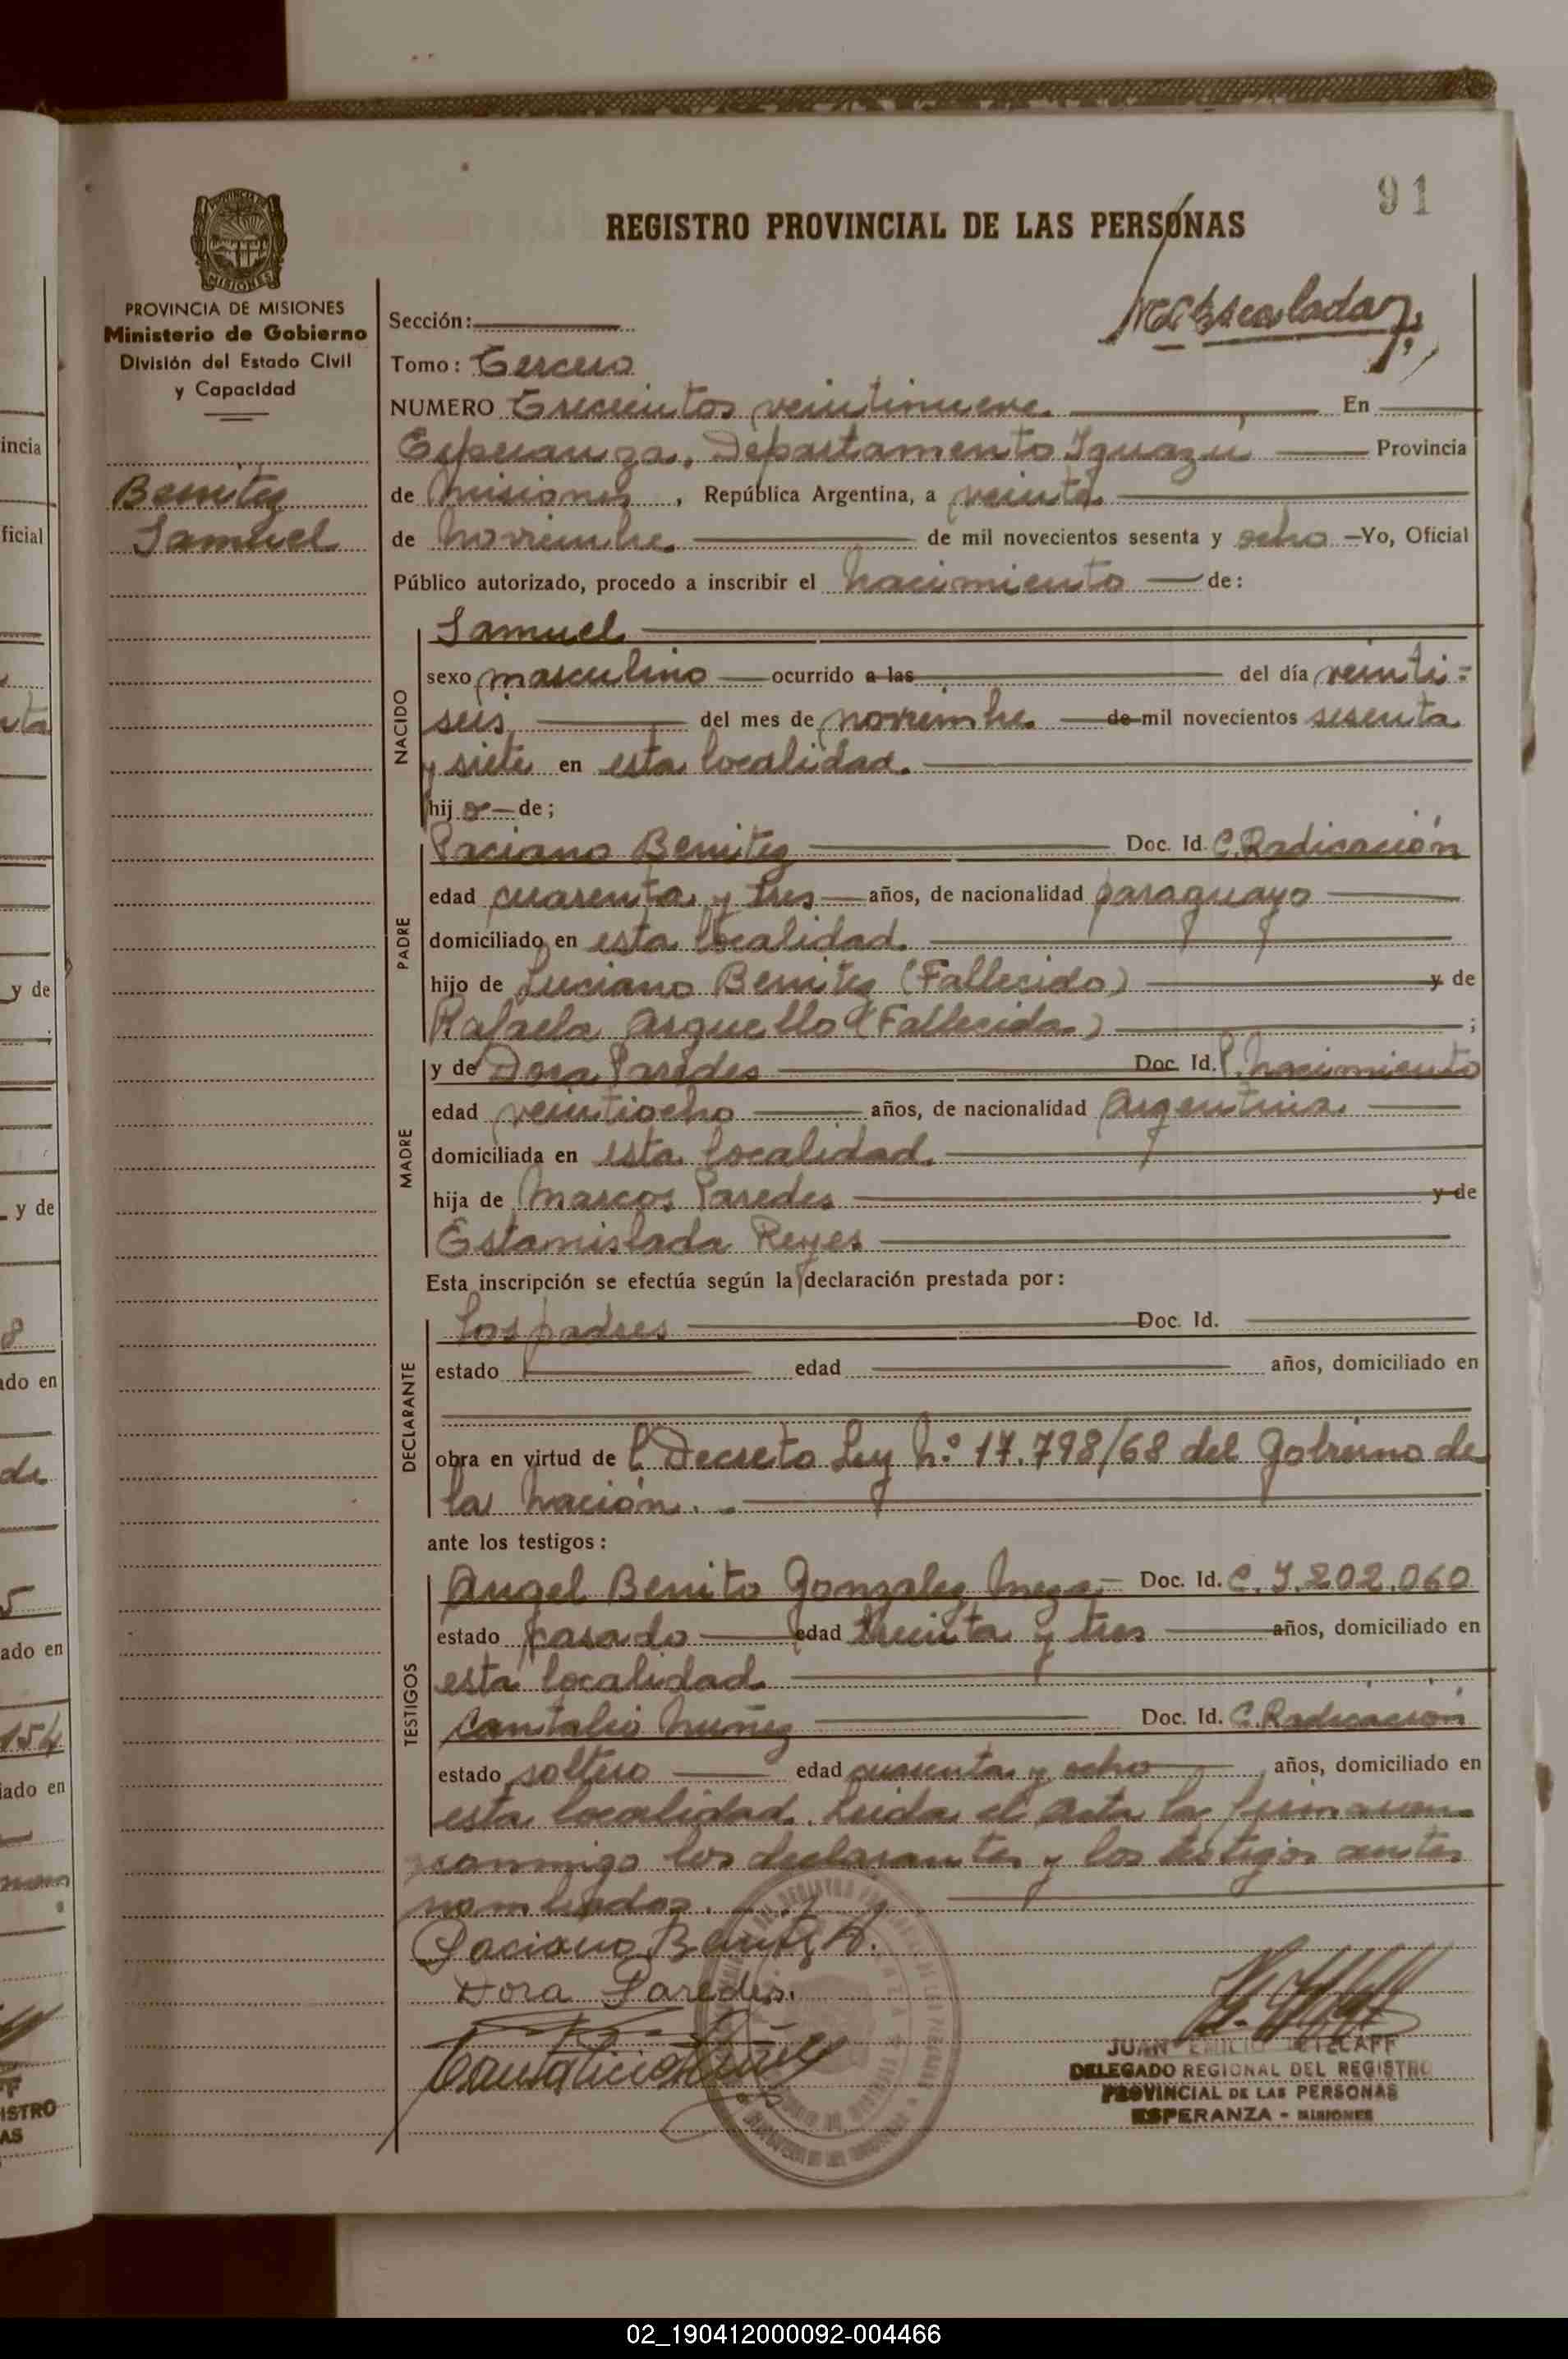 91
REGISTRO PROVINCIAL DE LAS PERSONAS
PROVINCIA DE MISIONES
Ministerio de Gobierno
División del Estado Civil
y Capacidad
Benitez
Samuel
Sección:
Tomo: Tercero
NUMERO Trecientos veintinueve. En
Esperanza, Departamento Iguazú Provincia
de Misiones, República Argentina, a veinte
de noviembre. de mil novecientos sesenta y ocho —Yo, Oficial
Público autorizado, procedo a inscribir el nacimiento de:
NACIDO
Samuel
sexo masculino ocurrido a las del día veinti=
seis del mes de noviembre de mil novecientos sesenta
y siete en esta localidad.
hijo de;
PADRE
Paciano Benitez Doc. Id. C. Radicación
edad cuarenta y tres años, de nacionalidad paraguayo
domiciliado en esta localidad.
hijo de Luciano Benitez (Fallecido) y de
Rafaela Arguello (Fallecida) ;
MADRE
y de Dora Paredes Doc. Id. P. nacimiento
edad veintiocho años, de nacionalidad Argentina
domiciliada en esta localidad.
hija de Marcos Paredes y de
Estamislada Reyes
Esta inscripción se efectúa según la declaración prestada por:
DECLARANTE
Los padres Doc. Id.
estado edad años, domiciliado en
obra en virtud de Decreto Ley N.º 17.798/68 del Gobierno de
la Nación.
ante los testigos:
TESTIGOS
Angel Benito Gonzalez Doc. Id. C. I. 202.060
estado casado edad treinta y tres años, domiciliado en
esta localidad.
Cantalicio Nuñez Doc. Id. C. Radicación
estado soltero edad cuarenta y ocho años, domiciliado en
esta localidad. Leida el Acta la firmaron
conmigo los declarantes y los testigos antes
nombrados.
Paciano Benitez
Dora Paredes.
Cantalicio Nuñez
JUAN EMILIO
DELEGADO REGIONAL DEL REGISTRO
PROVINCIAL DE LAS PERSONAS
ESPERANZA - MISIONES
02_190412000092-004466